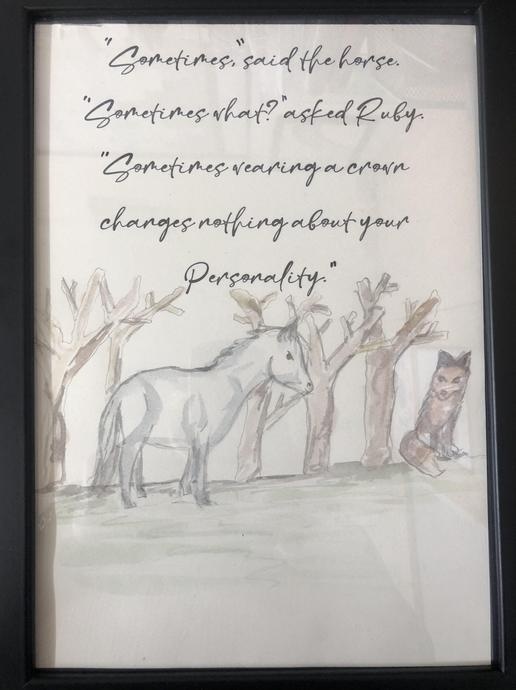 "Sometimes," said the horse.
"Sometimes what?" asked Ruby.
"Sometimes wearing a crown
changes nothing about your
Personality."